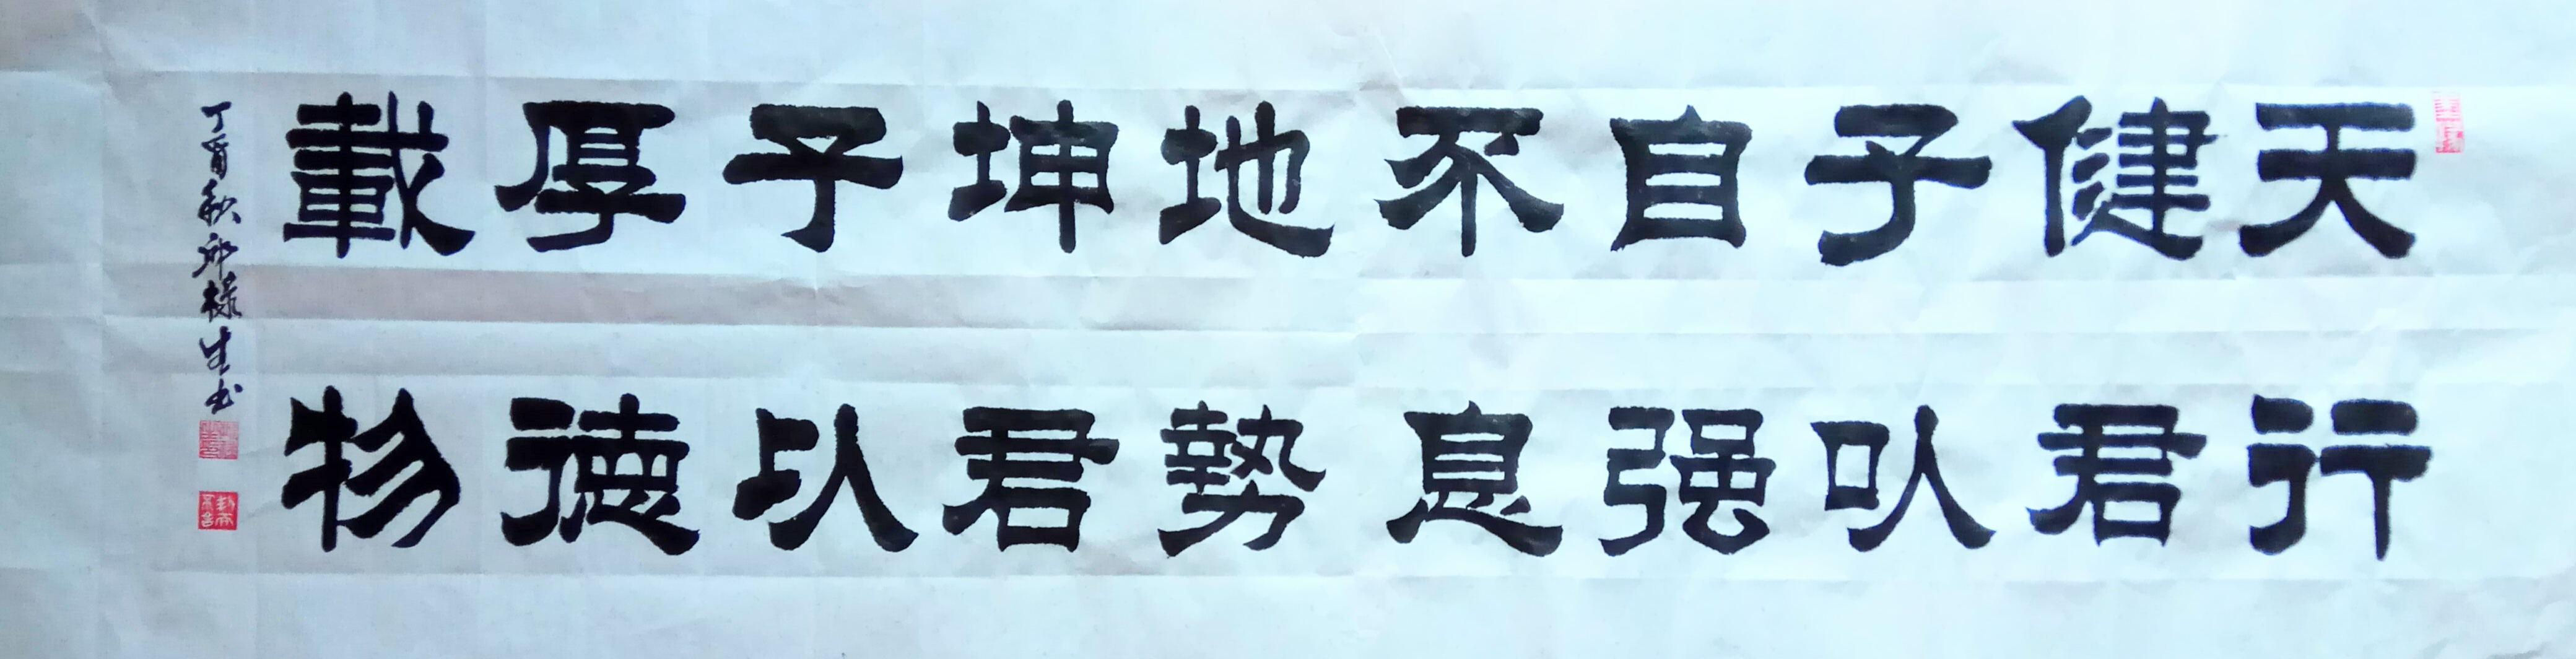 天行
健君
子以
自强
不息
地勢
坤君
子以
厚德
載物
丁酉秋邱禄生书